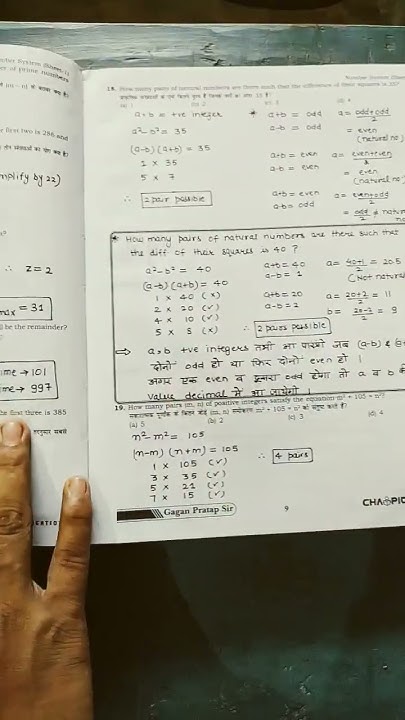 Number System
of prime numbers
first two is 286 and
simplify by 22)
∴ z = 2
max = 31
be the remainder?
→ 101
→ 997
the first three is 385
18. How many pairs of natural numbers are there such that the difference of their squares is 35?
(a) 1 (b) 2 (c) 3 (d) 4
a+b = +ve integer
a²-b² = 35
(a-b) (a+b) = 35
1 × 35
5 × 7
∴ 2 pair possible
* a+b = odd a = odd+odd/2
a-b = odd = even
(natural no.)
a+b = even a = even+even/2
a-b = even = even
(natural no.)
a+b = even a = even+odd/2
a-b = odd = odd/2 ≠ natural no
* How many pairs of natural numbers are there such that
the diff of their squares is 40 ?
a²-b² = 40
(a-b) (a+b) = 40
1 × 40 (×)
2 × 20 (✓)
4 × 10 (✓)
5 × 8 (×)
a+b = 40 a = 40+1/2 = 20.5
a-b = 1 (Not natural
a+b = 20 a = 20+2/2 = 11
a-b = 2 b = 20-2/2 = 9
∴ 2 pairs possible
⇒ a,b +ve integers तभी आ पाएंगे जब (a-b) &
दोनों odd हो या फिर दोनों even हो ।
अगर एक even व दूसरा odd होगा तो a व b
value decimal में आ जायेगी ।
19. How many pairs (m, n) of positive integers satisfy the equation m² + 105 = n²?
(a) 5 (b) 2 (c) 3 (d) 4
n²-m² = 105
(n-m) (n+m) = 105
1 × 105 (✓)
3 × 35 (✓)
5 × 21 (✓)
7 × 15 (✓)
∴ 4 pairs
Gagan Pratap Sir
9